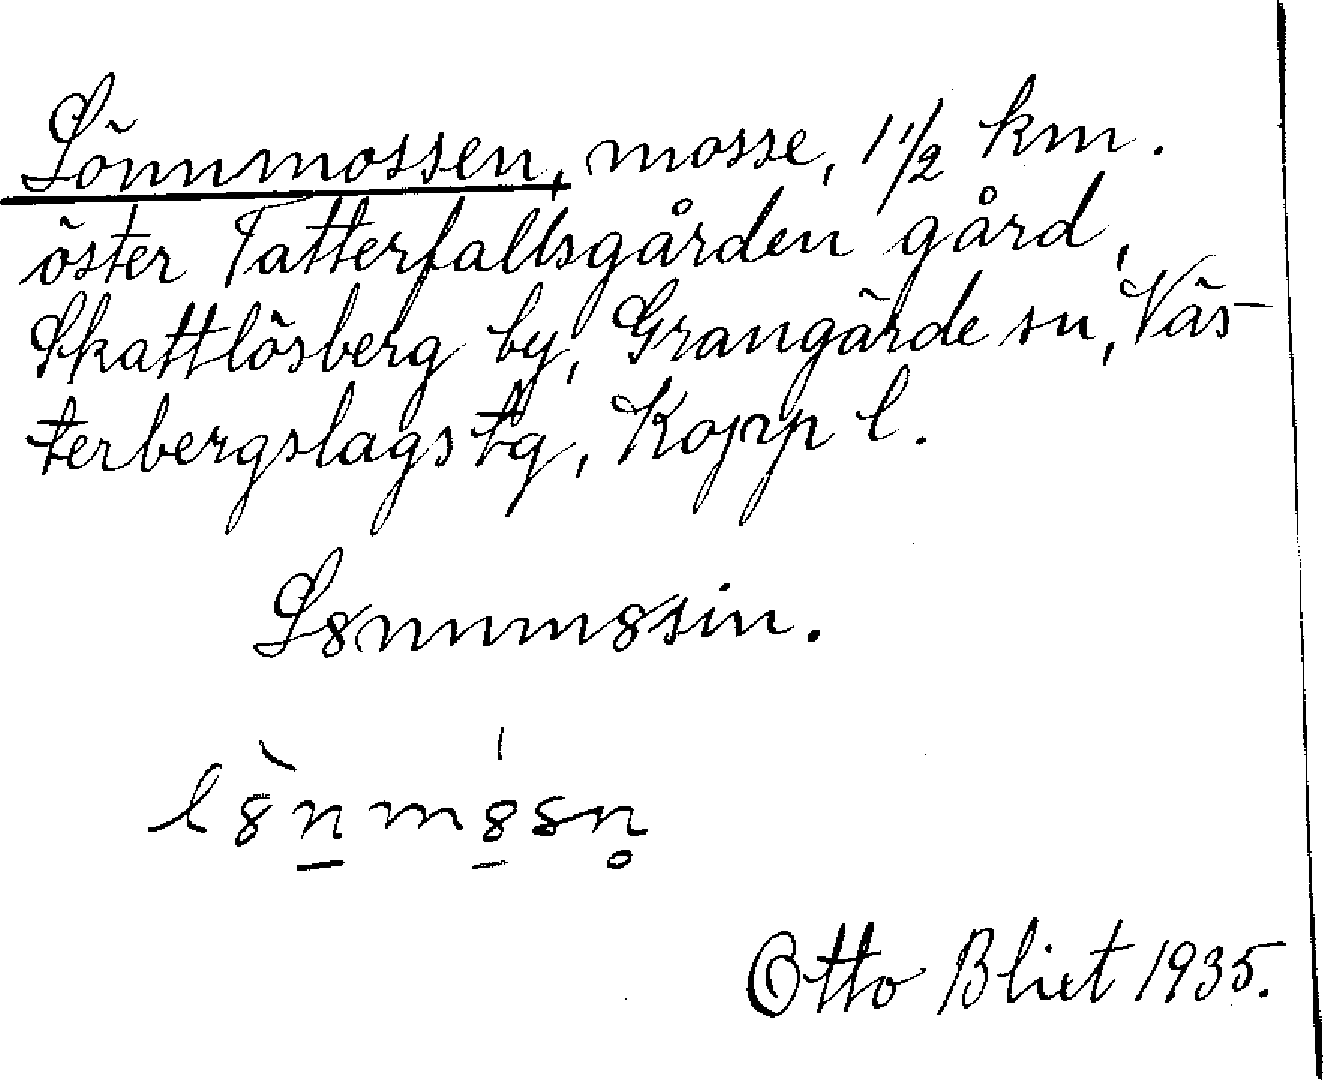 Lönnmossen, mosse, 1 1/2 km.
öster Tatterfallsgården gård,
Skattlösberg by, Grangärde sn, Väs-
terbergslags tg, Kopp l.
L8nnm8sin.
l8̀nm8́sn̥
Otto Blixt 1935.